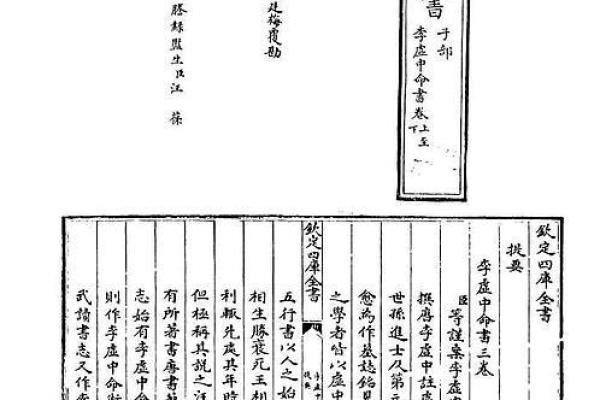 書
子部
李虛中命書卷上至
下
建梅覆勘
謄錄監生臣汪葆
欽定四庫全書
提要
李虛中命書三卷
臣等謹案李虛中
撰唐李虛中註虛
世孫進士及第元
愈為作墓誌銘見
之學者皆以虛中
欽定四庫全書
提要
五行書以人之始
相生勝衰死王相
利輒先處其年時
但極稱其說之汪
有所著書唐書藝
志始有李虛中命
則作李虛中命
武讀書志又作